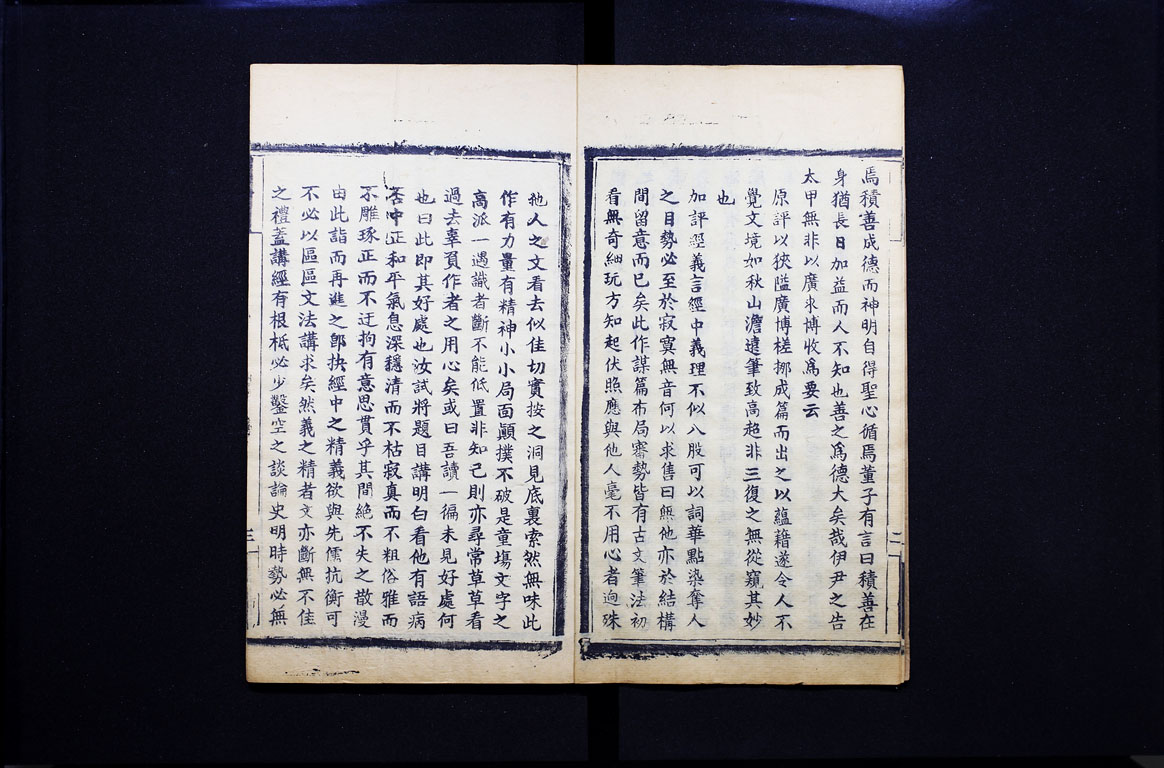 焉積善成德而神明自得聖心循焉董子有言曰積善在
身猶長日加益而人不知也善之爲德大矣哉伊尹之告
太甲無非以廣求博收爲要云
原評以狹隘廣博槎挪成篇而出之以蘊藉遂令人不
覺文境如秋山澹遠筆致高超非三復之無從窺其妙
也
加評經義言經中義理不似八股可以詞華點染奪人
之目勢必至於寂寞無音何以求售曰無他亦於結構
間留意而已矣此作謀篇布局審勢皆有古文筆法初
看無奇細玩方知起伏照應與他人毫不用心者迥殊
二
他人之文看去似佳切實按之洞見底裏索然無味此
作有力量有精神小小局面顚撲不破是童塲文字之
高派一遇識者斷不能低置非知己則亦尋常草草看
過去辜負作者之用心矣或曰吾讀一徧未見好處何
也曰此即其好處也汝試將題目講明白看他有語病
否中正和平氣息深穩清而不枯寂真而不粗俗雅而
不雕琢正而不迂拘有意思貫乎其間絕不失之散漫
由此詣而再進之卽抉經中之精義欲與先儒抗衡可
不必以區區文法講求矣然義之精者文亦斷無不佳
之禮蓋講經有根柢必少鑿空之談論史明時勢必無
三